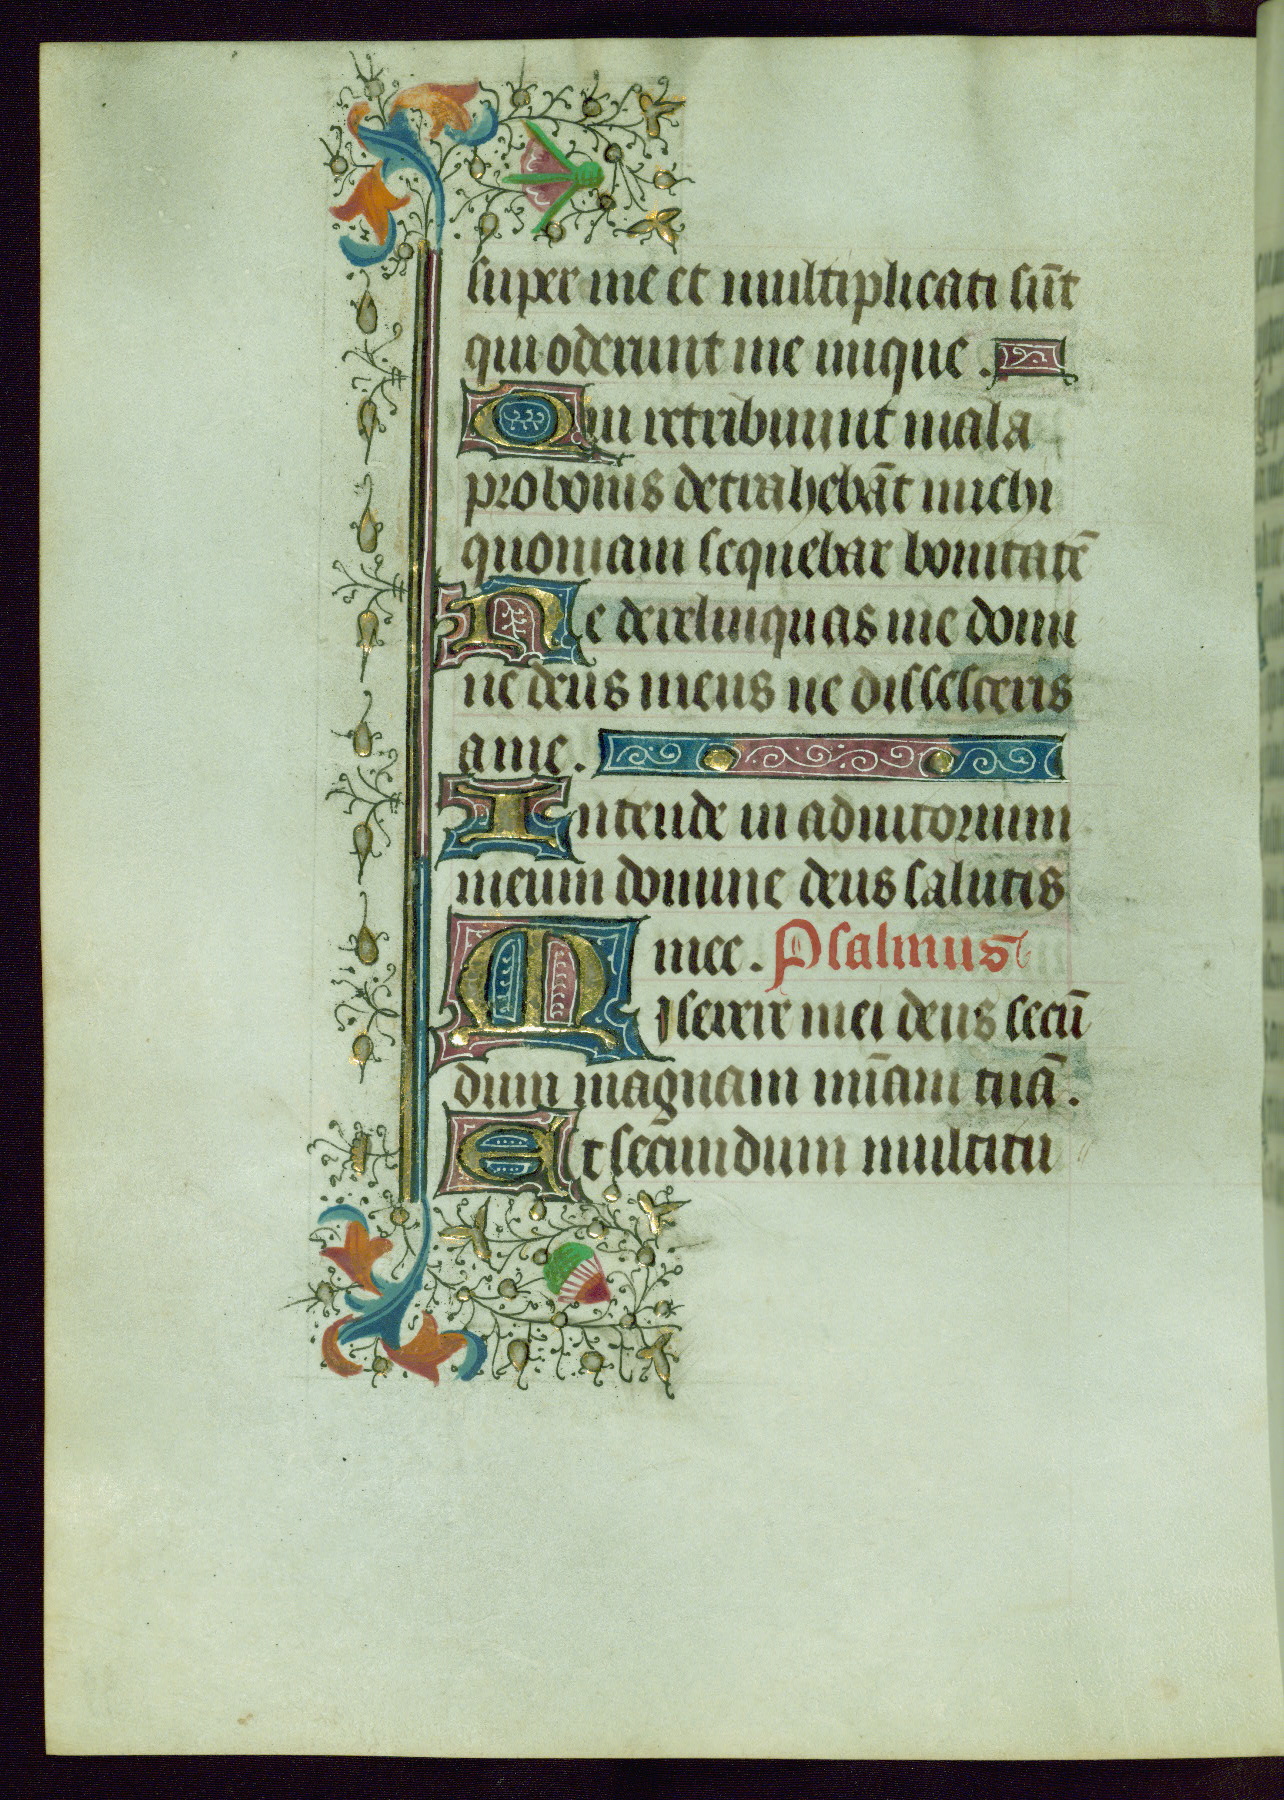 super me et multiplicati sūt
qui oderunt me inique.
Qui retribuunt mala
pro bonis detrahebāt michi
quoniam sequebar bonitatē
Ne derelinquas me domi
ne deus meus ne discesseris
a me.
Intende in adiutorium
meum domine deus salutis
mee. Psalmus
Miserere mei deus secū
dum magnam mīam tuā.
Et secundum multitu